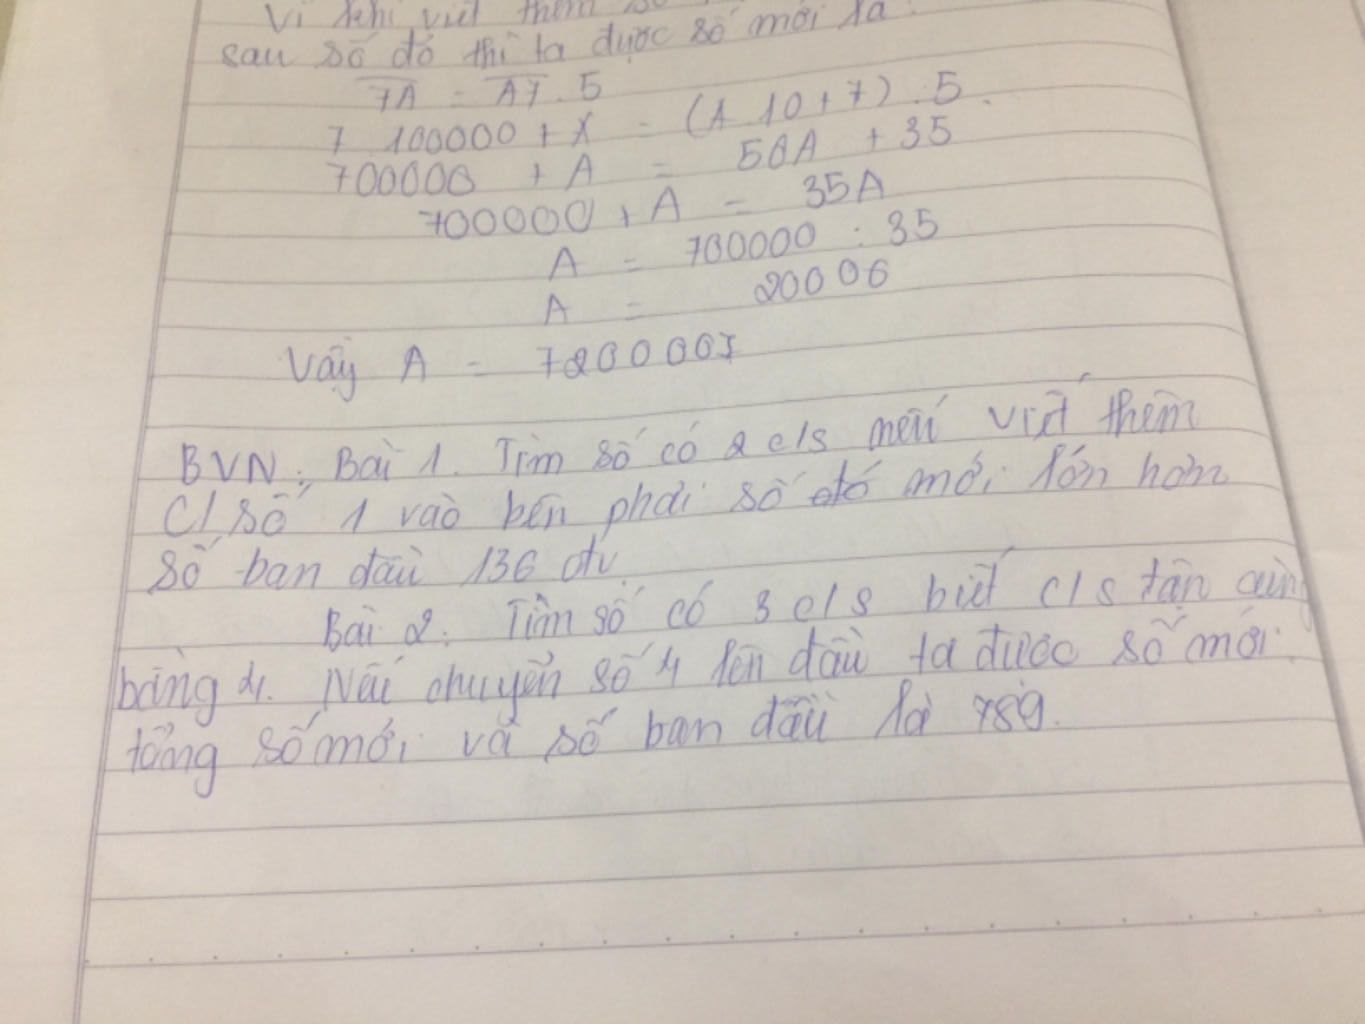 Vì khi viết thêm số
sau số đó thì ta được số mới là
7A = A7 . 5
7 100000 + X = (A 10 + 7) . 5
700000 + A = 50A + 35
700000 + A = 35A
A = 700000 : 35
A = 20000
Vậy A = 7200007
BVN: Bài 1. Tìm số có 2 c/s nếu viết thêm
C/ số 1 vào bên phải số đó mới lớn hơn
số ban đầu 136 đv
Bài 2. Tìm số có 3 c/s biết c/s tận cùng
bằng 4. Nếu chuyển số 4 lên đầu ta được số mới.
tổng số mới và số ban đầu là 789.